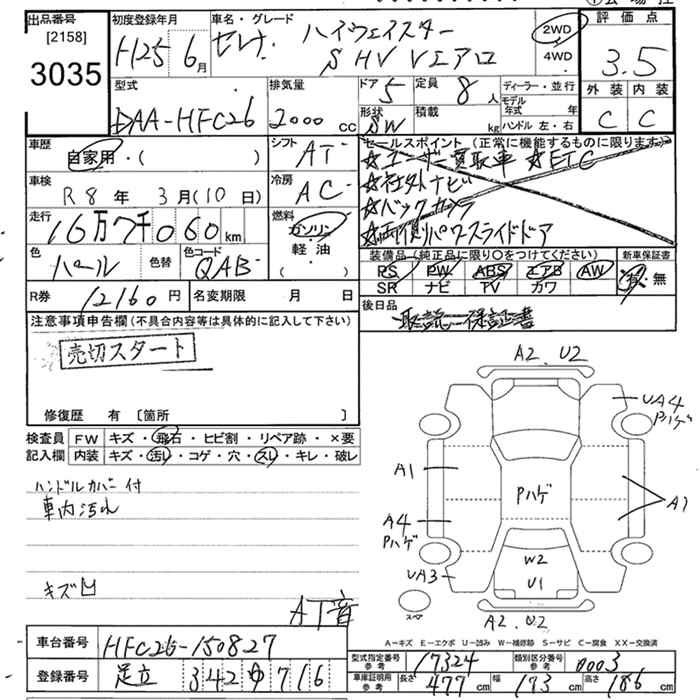 出品番号 [2158] 3035
初度登録年月 H25 6月
車名・グレード セレナ ハイウェイスター
S HV Vエアロ
2WD
4WD
評価点 3.5
外装 C 内装 C
型式 DAA-HFC26
排気量 2000 cc
ドア 5 定員 8人
形状 SW 積載 kg
ディーラー・並行
モデル年式 年
ハンドル 左・右
車歴 自家用・( )
シフト AT
車検 R8年 3月(10日)
冷房 AC
走行 16万7千060km
燃料 ガソリン・軽油
色 パール 色替 色コード QAB
R券 12160円 名変期限 月 日
セールスポイント(正常に機能するものに限ります)
☆ユーザー買取車 ☆ETC
☆社外ナビ
☆バックカメラ
☆両側パワースライドドア
装備品(純正品に限り○をつけてください) 新車保証書
PS PW ABS エアB AW 有・無
SR ナビ TV カワ
後日品 取説 保証書
注意事項申告欄(不具合内容等は具体的に記入して下さい)
売切スタート
修復歴 有 [箇所 ]
検査員 FW キズ・飛石・ヒビ割・リペア跡・×要
記入欄 内装 キズ・汚レ・コゲ・穴・スレ・キレ・破レ
ハンドルカバー付
車内汚れ
キズ凹
AT音
A2 U2
UA4
Pハゲ
A1
Pハゲ
A1
A4
Pハゲ
UA3
W2
U1
スペア
A2 U2
A-キズ E-エクボ U-凹み W-補修跡 S-サビ C-腐食 XX-交換済
車台番号 HFC26-150827
登録番号 足立 342 ゆ 716
型式指定番号 参考 17324 類別区分番号 参考 0003
車庫証明用 参考 長さ 477cm 幅 173cm 高さ 186cm